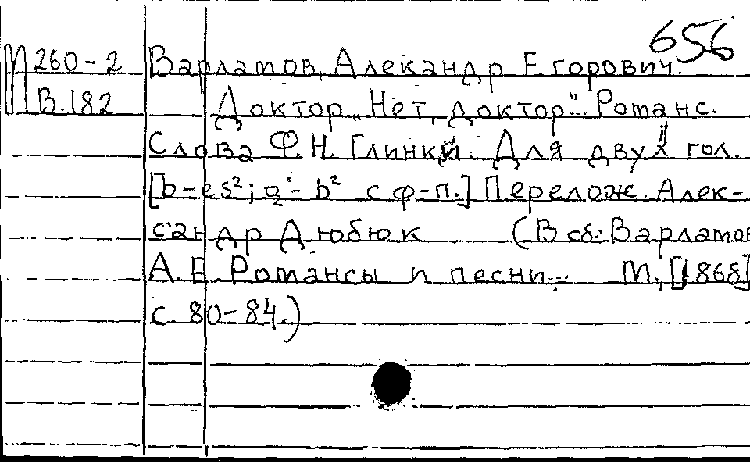 656
П 260-2 Варламов, Александр Егорович.
В.182 Доктор „Нет, доктор". Романс.
Слова Ф.Н. Глинки. Для двух гол.
[b-es²; a-b² с ф-п.] Перелож. Алек-
сандр Дюбюк (В сб: Варламов
А.Е. Романсы и песни. М, [1868]
с. 80-84.)